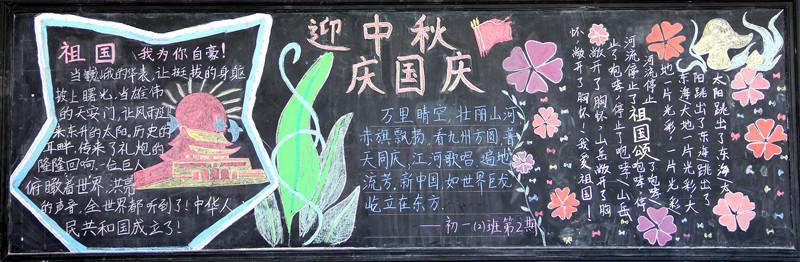 祖国 我为你自豪!
当巍峨的华表,让挺拔的身躯
披上曙光,当雄伟
的天安门,让风雨迎
来东升的太阳,历史的
耳畔,传来了礼炮的
隆隆回响,一位巨人
俯瞰着世界,洪亮
的声音,全世界都听到了!中华人
民共和国成立了!
迎中秋
庆国庆
万里晴空,壮丽山河
赤旗飘扬,看九州方圆,普
天同庆,江河歌唱,遍地
流芳,新中国,如世界巨友
屹立在东方.
——初一(2)班第2期
祖国颂
太阳跳出了东海,太
阳跳出了东海跳出了
东海大地一片光彩,大
地一片光彩一片光彩,
河流停止了咆哮,
河流停止了咆哮,停
止了咆哮,停止了咆哮,山岳
敞开了胸怀,山岳敞开了胸
怀,敞开了胸怀!我爱祖国!